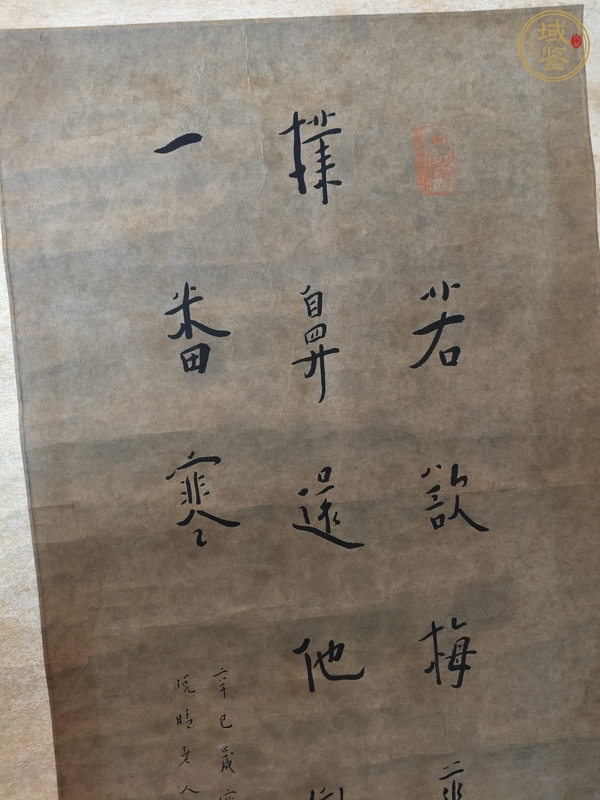 若欲梅
撲鼻還他
一番寒
辛巳歲
晚晴老人
域鉴